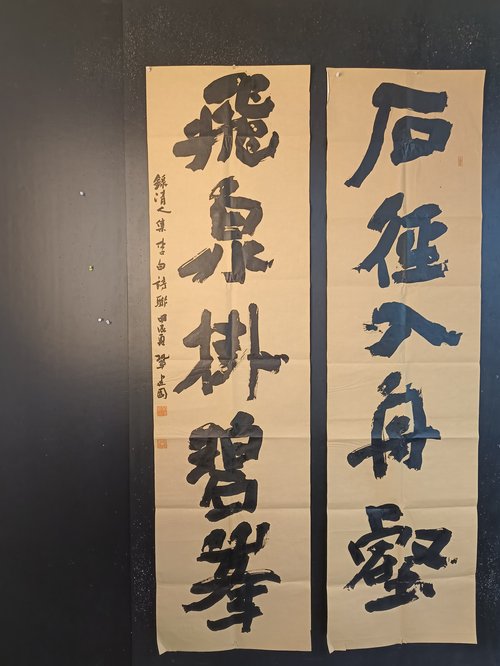 石徑入丹壑
飛泉掛碧峯
錄清人集李白詩聯 建國